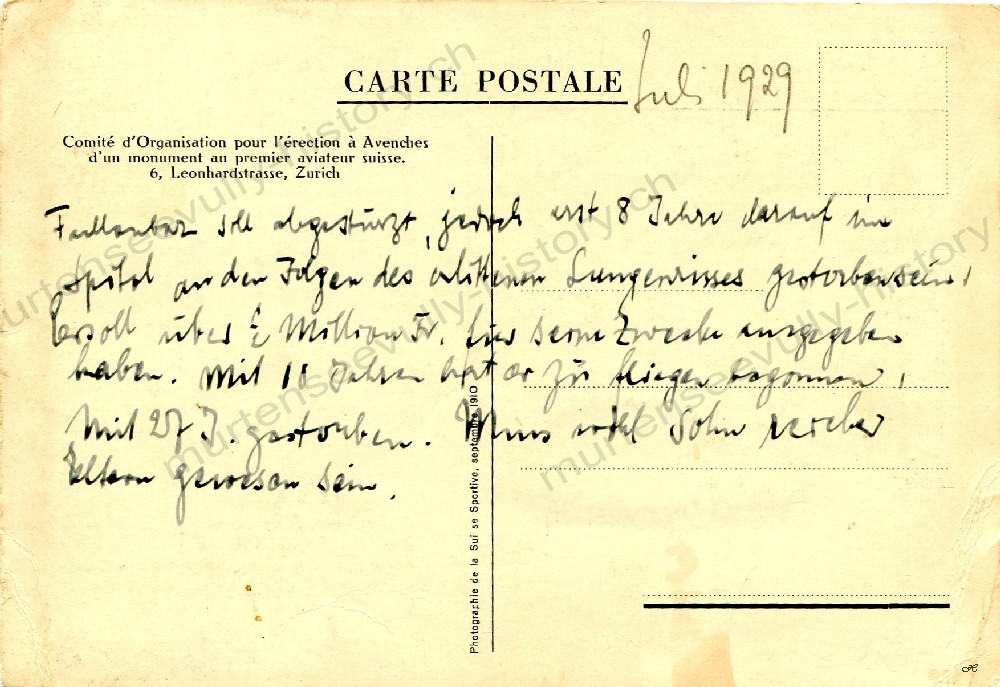 CARTE POSTALE
Juli 1929
Comité d'Organisation pour l'érection à Avenches
d'un monument au premier aviateur suisse.
6, Leonhardstrasse, Zurich
soll abgestürzt, jedoch erst 8 Jahre darauf im
Spital an den Folgen des erlittenen Lungenrisses gestorben sein,
Er soll über ½ Million Fr. für seine Zwecke ausgegeben
haben. Mit Jahren hat er zu fliegen begonnen,
Mit 27 J. gestorben. Muss Sohn reicher
Eltern gewesen sein.
Photographie de la Suisse Sportive, septembre 1910
murtenseevully-history.ch
murtenseevully-history.ch
murtenseevully-history.ch
murtenseevully-history
H